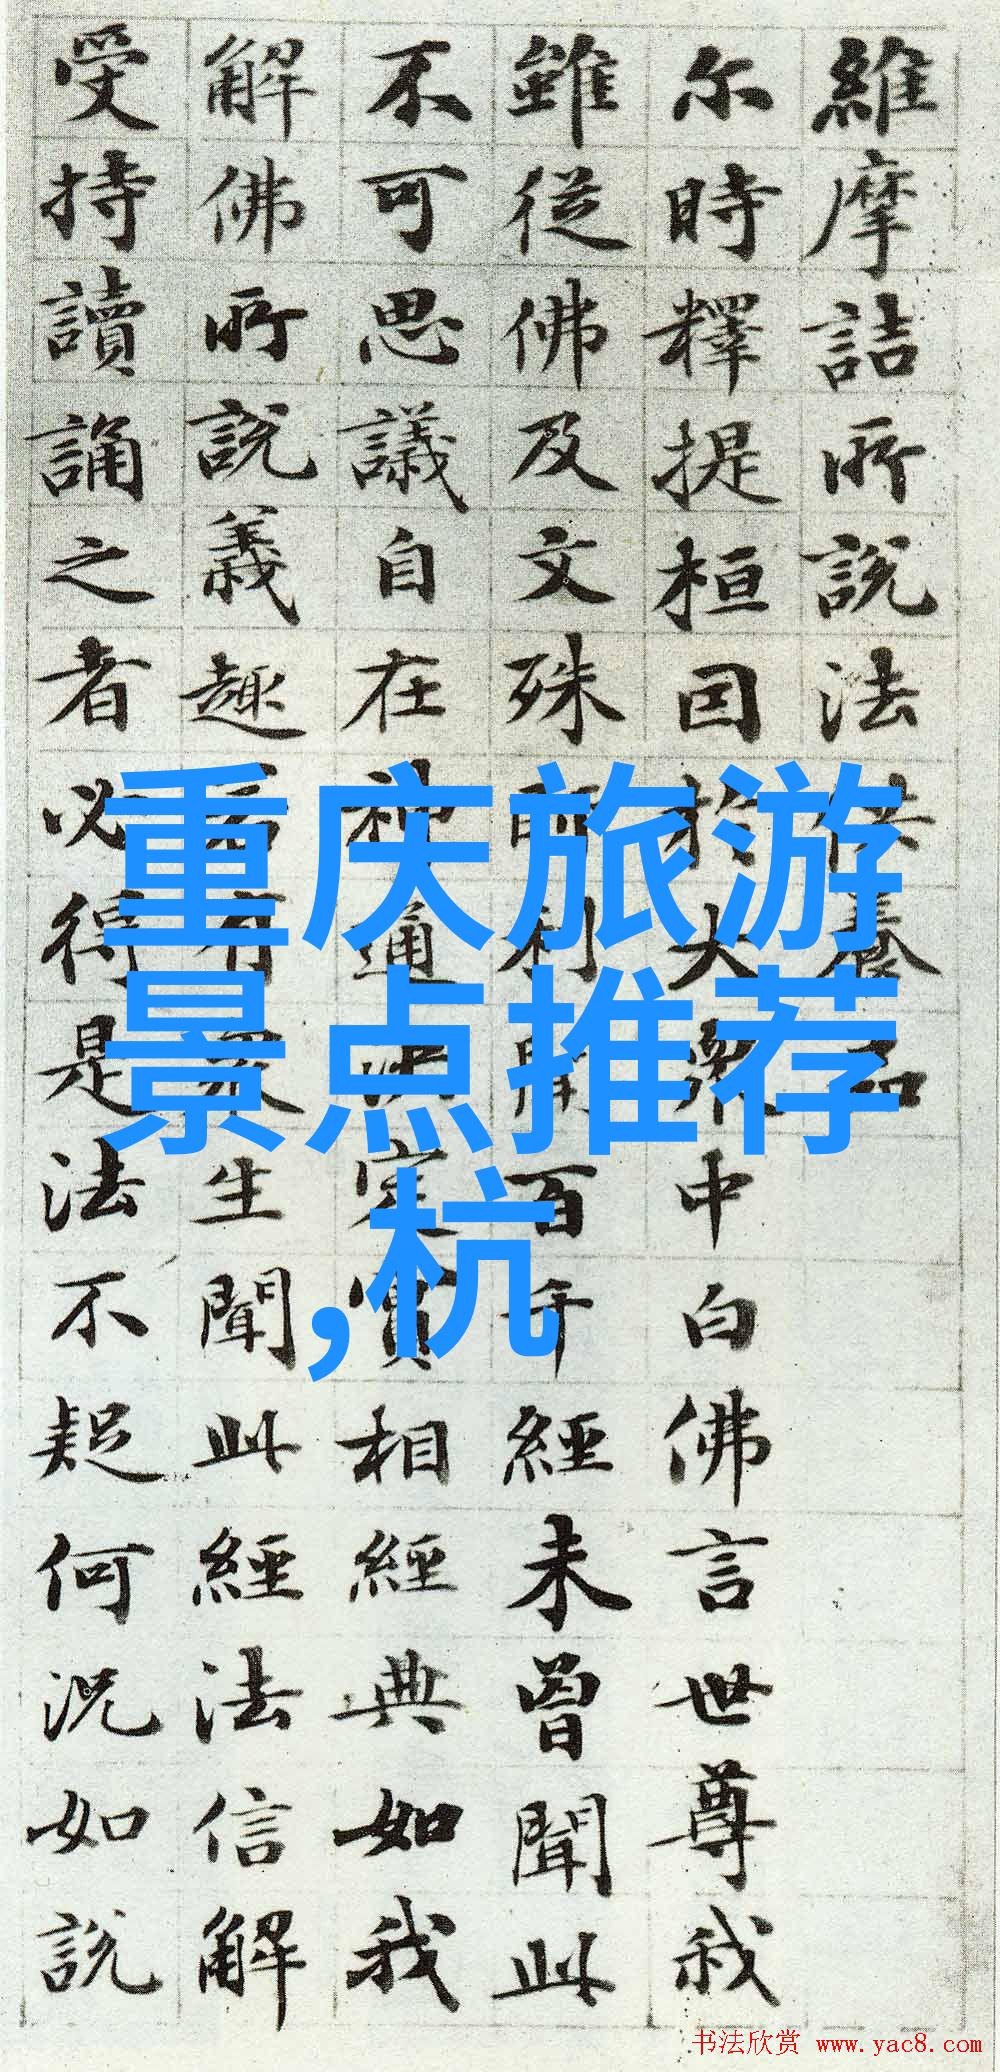 維摩詰所說法供養品
尔時釋提桓因於大衆中白佛言世尊我
雖從佛及文殊師利聞百千經未曾聞此
不可思議自在神通決定實相經典如我
解佛所說義趣若有衆生聞此經法信解
受持讀誦之者必得是法不疑何況如說
重庆旅游
景点推荐
,杭
书法欣赏 www.yac8.com